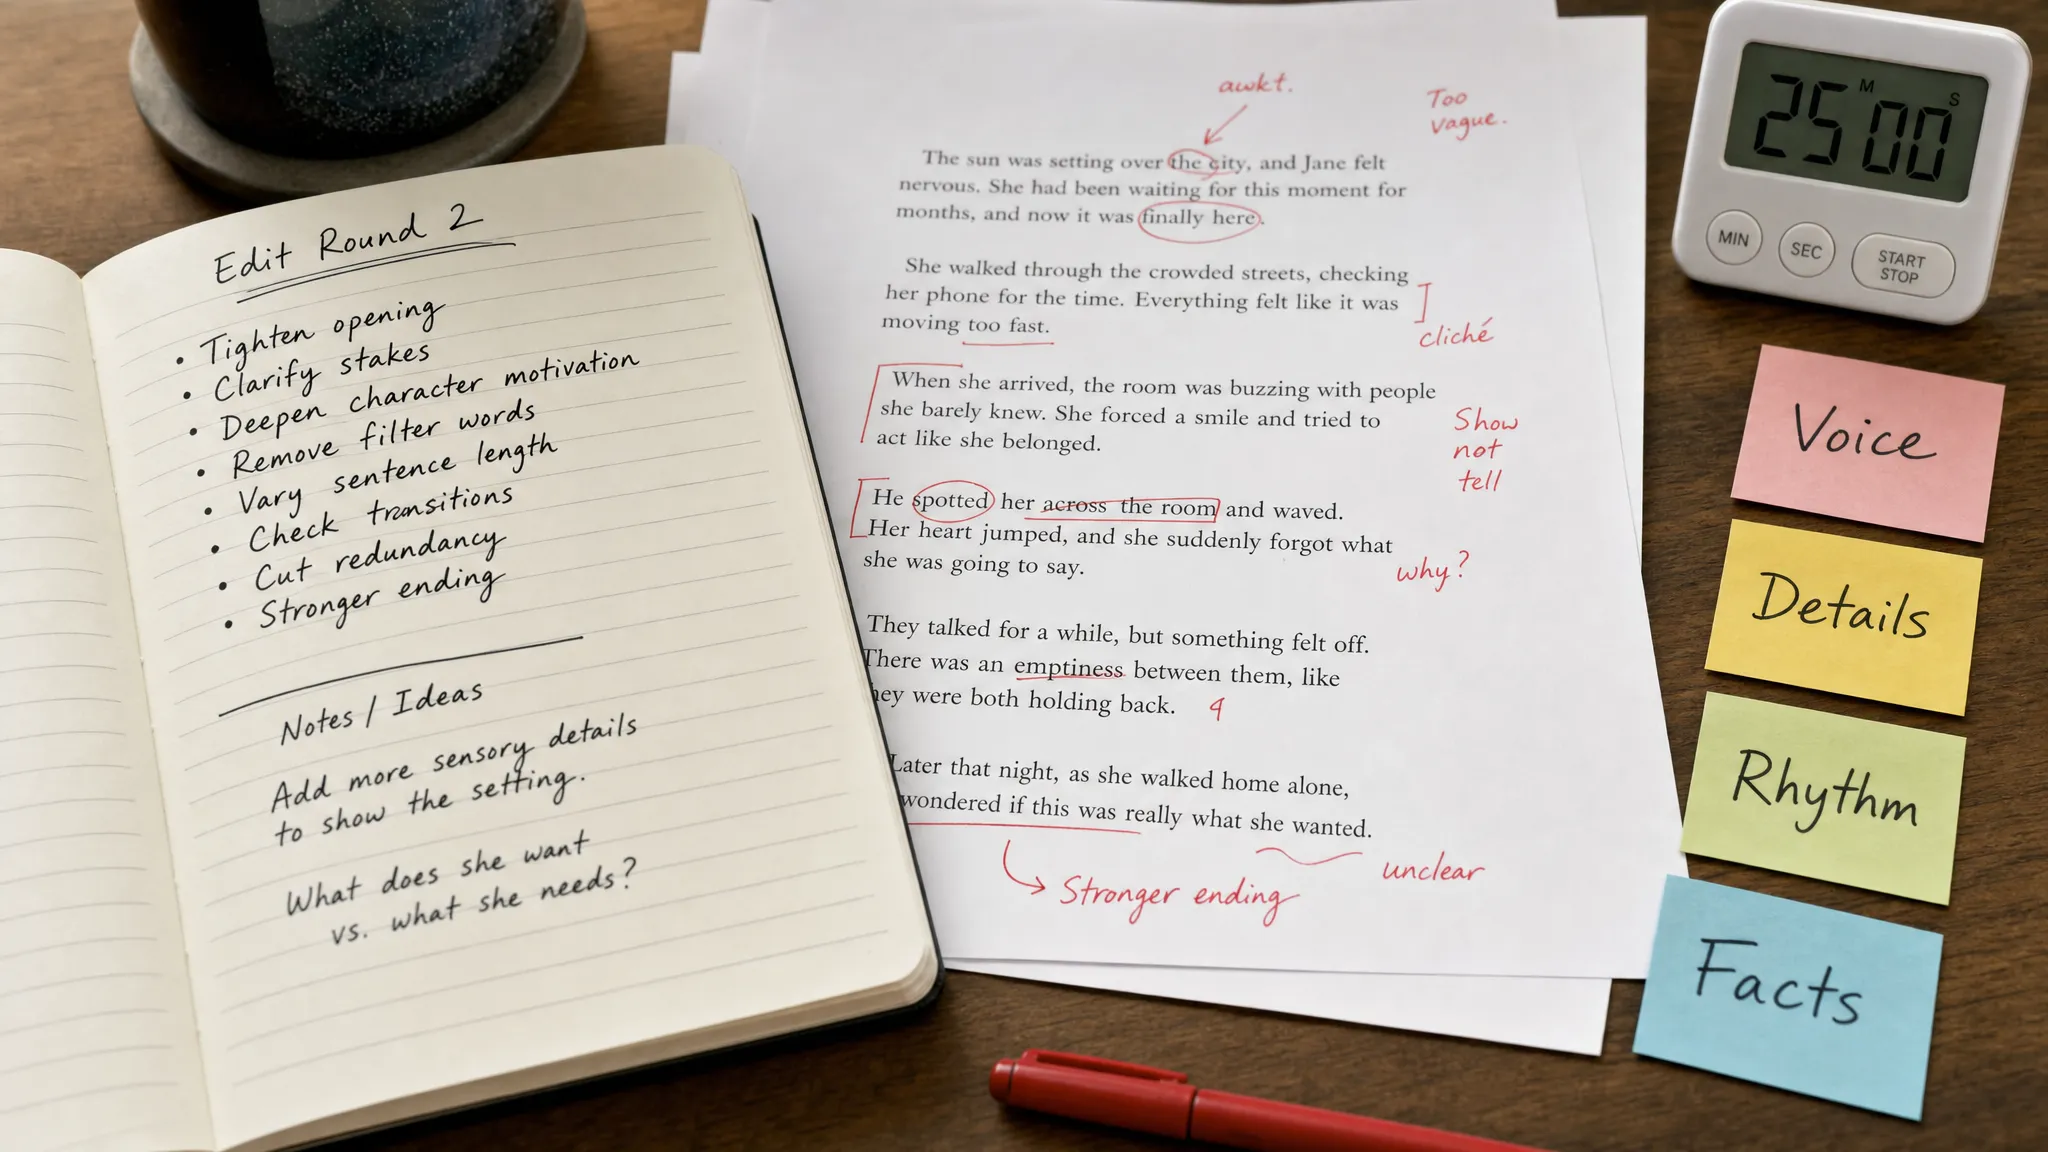 Edit Round 2
• Tighten opening
• Clarify stakes
• Deepen character motivation
• Remove filter words
• Vary sentence length
• Check transitions
• Cut redundancy
• Stronger ending
Notes / Ideas
Add more sensory details
to show the setting.
What does she want
vs. what she needs?
awkt.
Too
vague.
The sun was setting over the city, and Jane felt
nervous. She had been waiting for this moment for
months, and now it was finally here.
She walked through the crowded streets, checking
her phone for the time. Everything felt like it was
moving too fast.
cliché
When she arrived, the room was buzzing with people
she barely knew. She forced a smile and tried to
act like she belonged.
Show
not
tell
He spotted her across the room and waved.
Her heart jumped, and she suddenly forgot what
she was going to say.
why?
They talked for a while, but something felt off.
There was an emptiness between them, like
hey were both holding back.
Later that night, as she walked home alone,
wondered if this was really what she wanted.
unclear
Stronger ending
25 M 00 S
MIN
SEC
START
STOP
Voice
Details
Rhythm
Facts